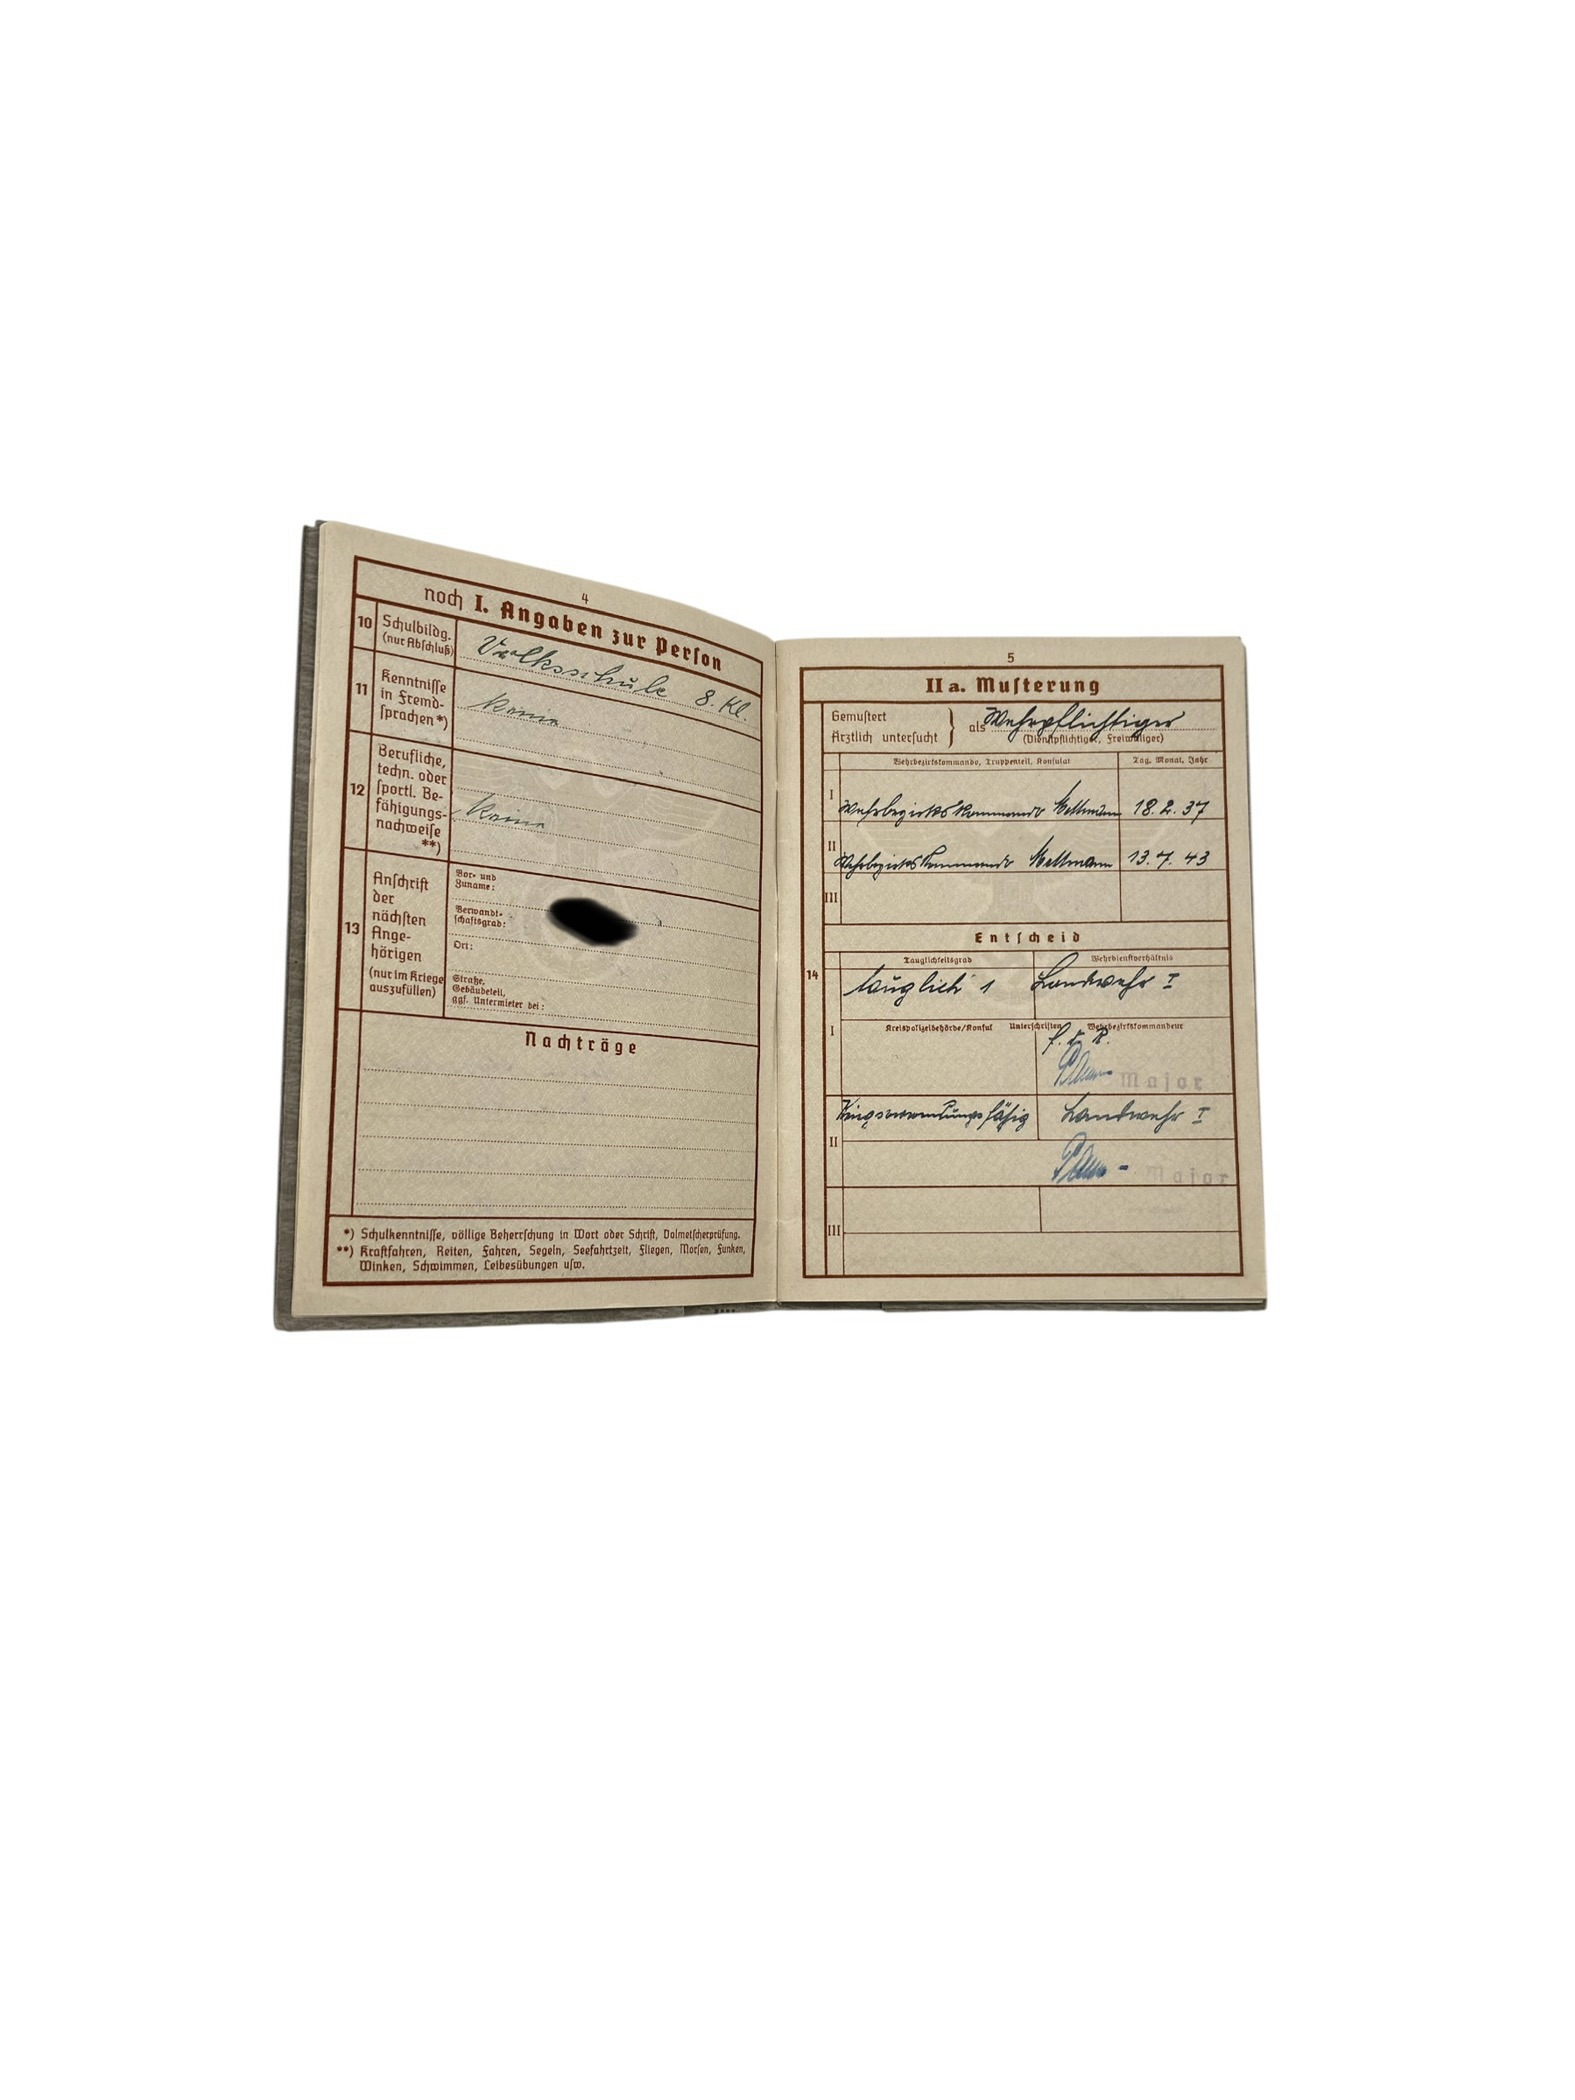 4
noch I. Angaben zur Person
10 Schulbildg. (nur Abschluß) Volksschule 8. Kl.
11 Kenntnisse in Fremd-
sprachen *) Keine
12 Berufliche,
techn. oder
sportl. Be-
fähigungs-
nachweise
**) Keine
13 Anschrift
der
nächsten
Ange-
hörigen
(nur im Kriege
auszufüllen)
Vor- und
Zuname:
Verwandt-
schaftsgrad:
Ort:
Straße,
Gebäudeteil,
ggf. Untermieter bei:
Nachträge
*) Schulkenntnisse, völlige Beherrschung in Wort oder Schrift, Dolmetscherprüfung.
**) Kraftfahren, Reiten, Fahren, Segeln, Seefahrtzeit, Fliegen, Morsen, Funken,
Winken, Schwimmen, Leibesübungen usw.
5
IIa. Musterung
Gemustert
Ärztlich untersucht } als Wehrpflichtiger
(Dienstpflichtiger, Freiwilliger)
Wehrbezirkskommando, Truppenteil, Konsulat Tag, Monat, Jahr
I Wehrbezirkskommando Mettmann 18.2.37
II Wehrbezirkskommando Mettmann 13.7.43
III
Entscheid
14
Tauglichkeitsgrad Wehrdienstverhältnis
tauglich 1 Landwehr I
I Kreispolizeibehörde/Konsul Unterschriften Wehrbezirkskommandeur
Major
Kriegsverwendungsfähig Landwehr I
II
Major
III